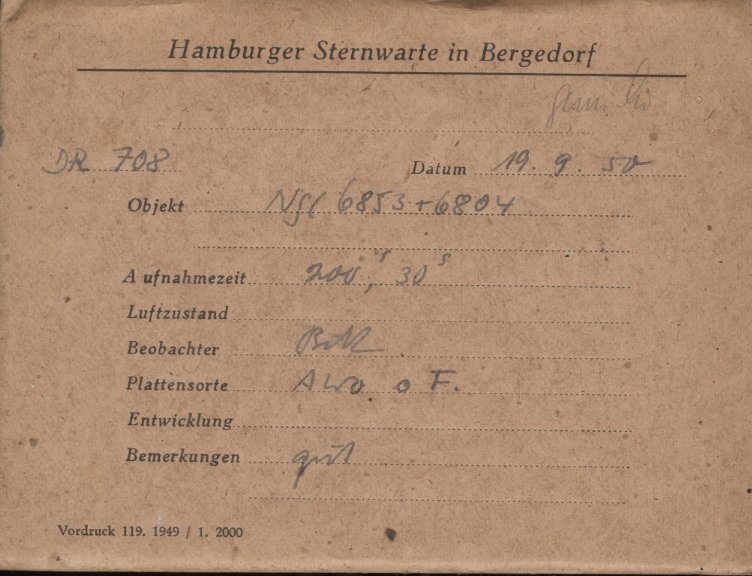 Hamburger Sternwarte in Bergedorf
DR 708 Datum 19. 9. 50
Objekt NGC 6853+6804
Aufnahmezeit 200s, 30s
Luftzustand
Beobachter
Plattensorte o F.
Entwicklung
Bemerkungen gut
Vordruck 119. 1949 / 1. 2000